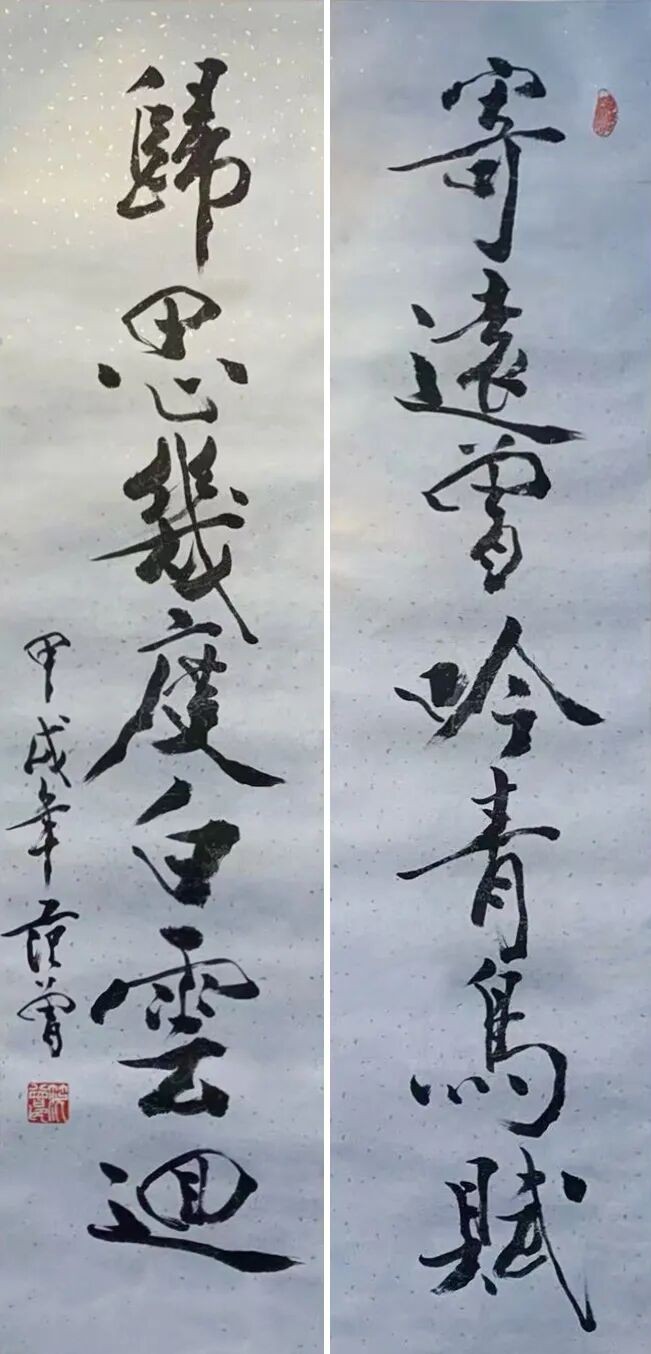 寄遠曾吟青鳥賦
歸思幾度白雲迴
甲戌年 范曾
范曾